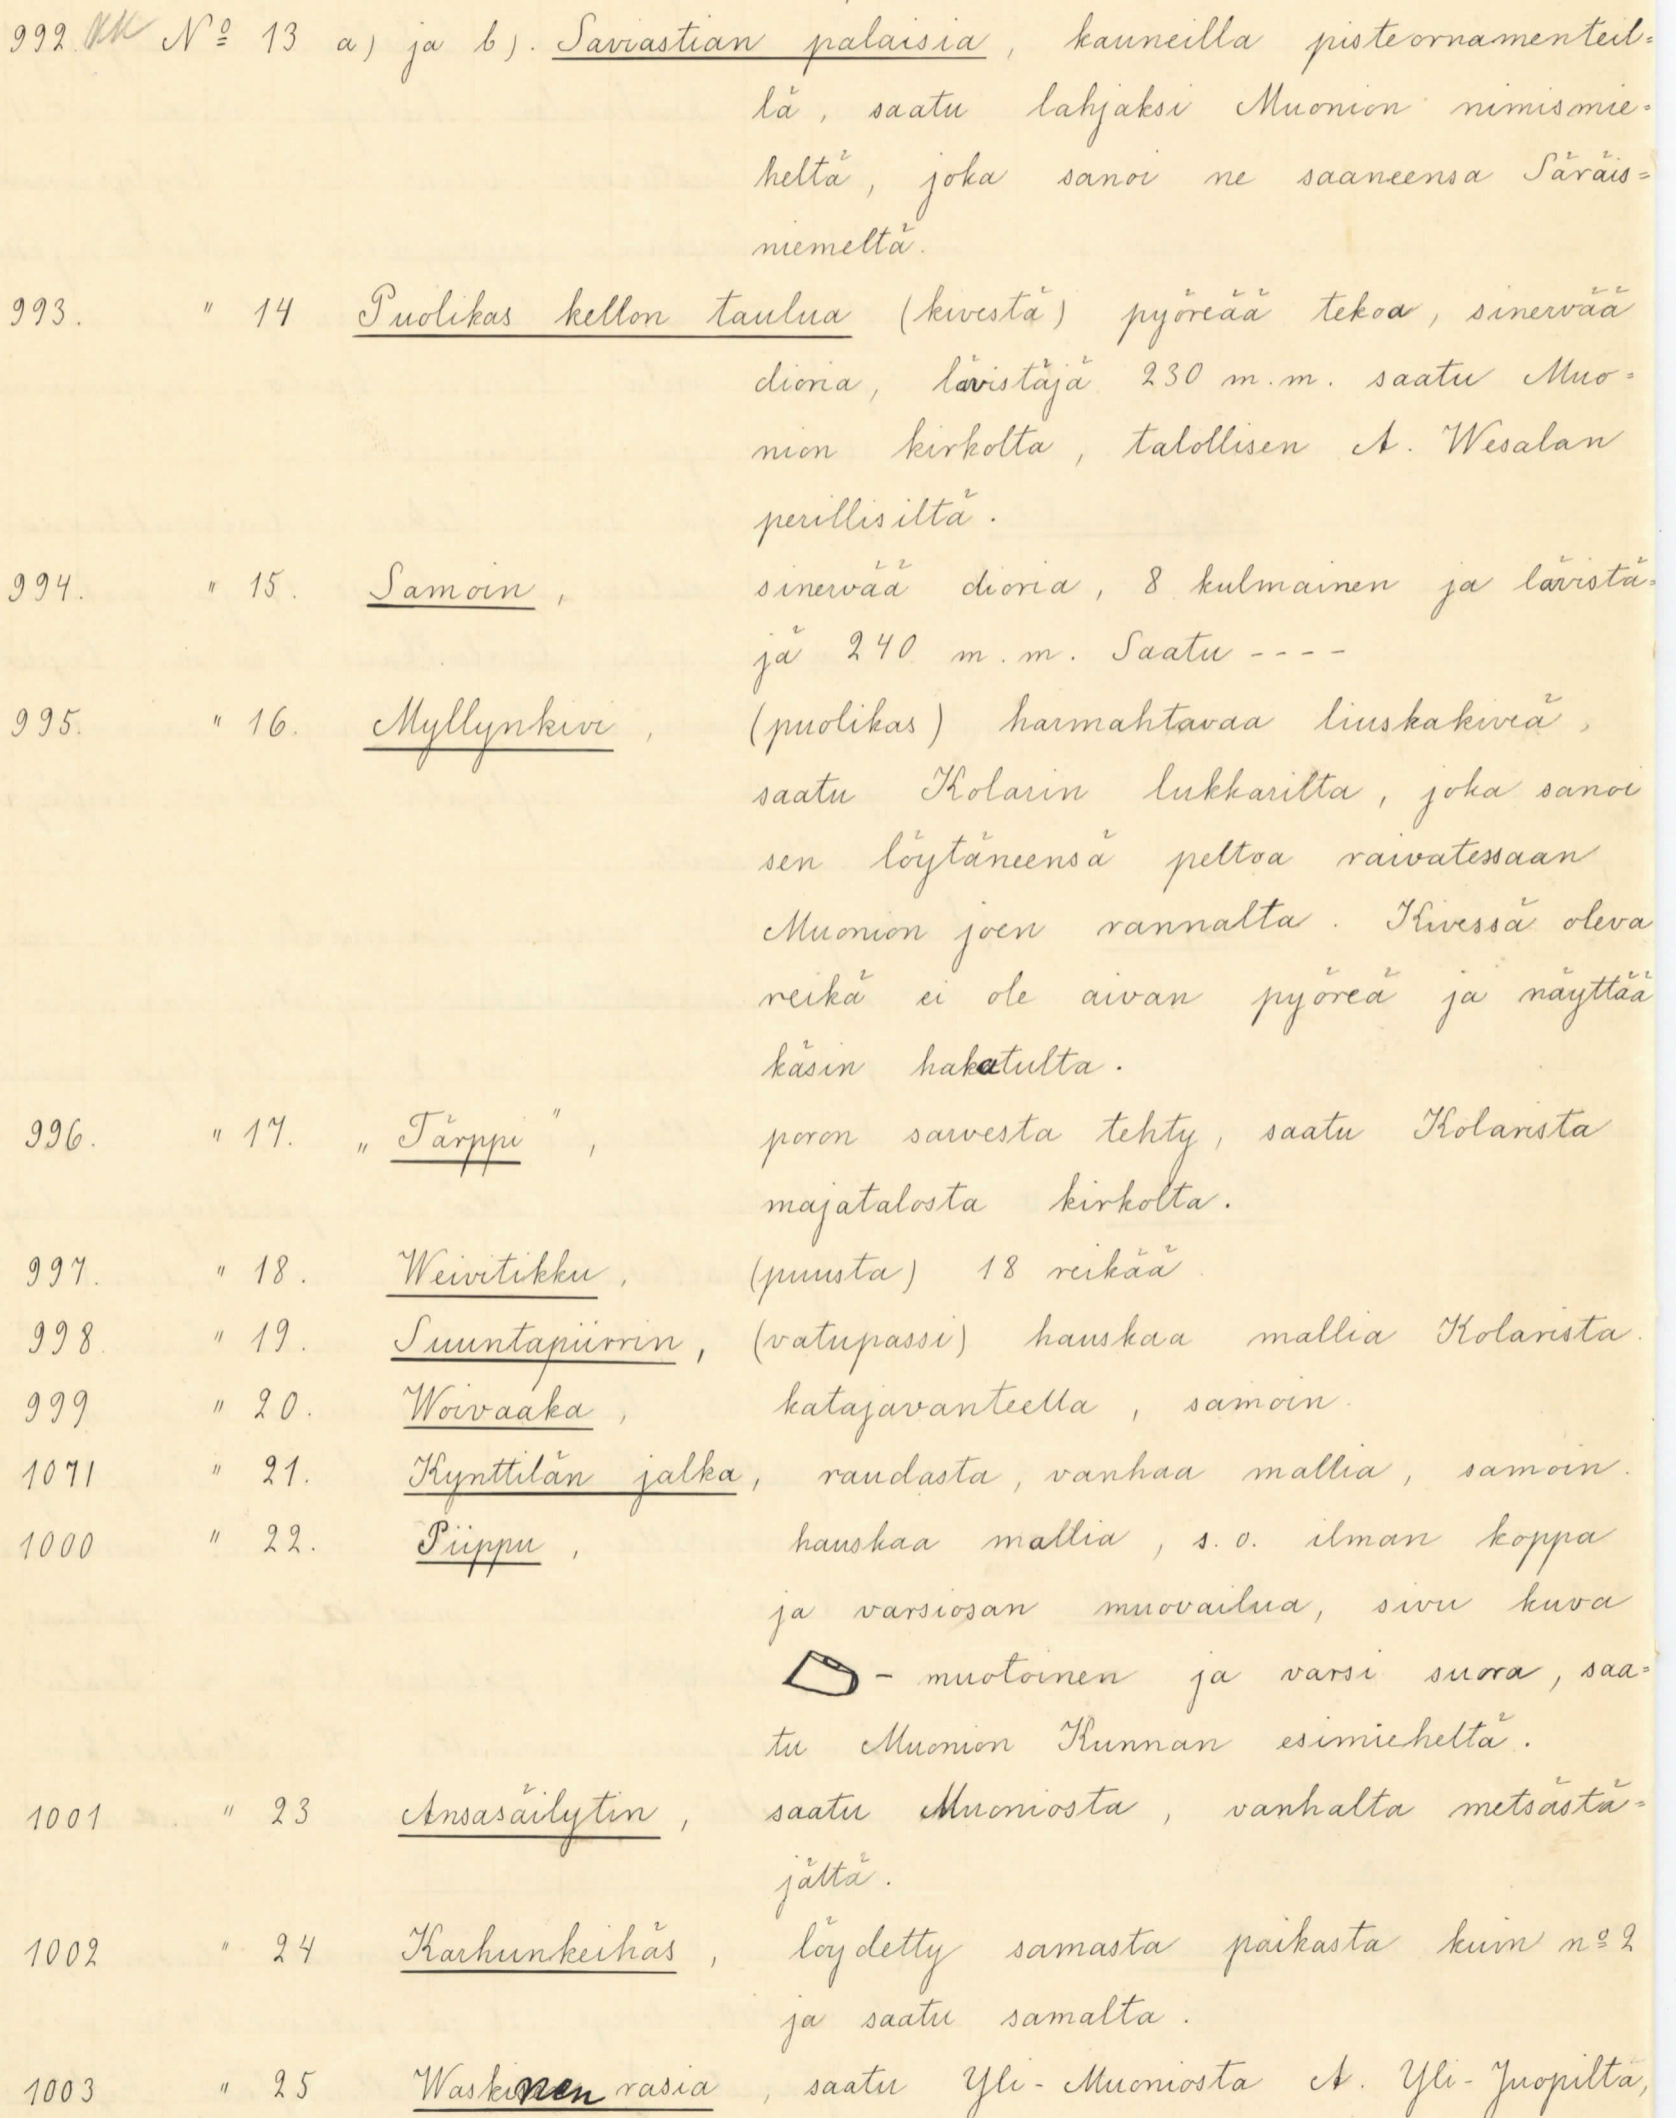 992. KK Nº 13 a) ja b). Saviastian palaisia, kauneilla pisteornamenteil=
lä, saatu lahjaksi Muonion nimismie=
heltä, joka sanoi ne saaneensa Säräis=
niemeltä.
993. " 14 Puolikas kellon taulua (kivestä) pyöreää tekoa, sinervää
dioria, lävistäjä 230 m.m. saatu Muo=
nion kirkolta, talollisen A. Wesalan
perillisiltä.
994. " 15. Samoin, sinervää dioria, 8 kulmainen ja lävistä=
jä 240 m.m. Saatu ----
995. " 16. Myllynkivi, (puolikas) harmahtavaa liuskakiveä,
saatu Kolarin lukkarilta, joka sanoi
sen löytäneensä peltoa raivatessaan
Muonion joen rannalta. Kivessä oleva
reikä ei ole aivan pyöreä ja näyttää
käsin hakatulta.
996. " 17. „Tärppi", poron sarvesta tehty, saatu Kolarista
majatalosta kirkolta.
997. " 18. Weivitikku, (puusta) 18 reikää
998. " 19. Suuntapiirrin, (vatupassi) hauskaa mallia Kolarista.
999 " 20. Woivaaka, katajavanteella, samoin.
1071 " 21. Kynttilän jalka, raudasta, vanhaa mallia, samoin.
1000 " 22. Piippu, hauskaa mallia, s.o. ilman koppa
ja varsiosan muovailua, sivu kuva
- muotoinen ja varsi suora, saa=
tu Muonion Kunnan esimieheltä.
1001 " 23 Ansasäilytin, saatu Muoniosta, vanhalta metsästä=
jältä.
1002 " 24 Karhunkeihäs, löydetty samasta paikasta kuin nº 2
ja saatu samalta.
1003 " 25 Waskinen rasia, saatu Yli-Muoniosta A. Yli-Juopilta,